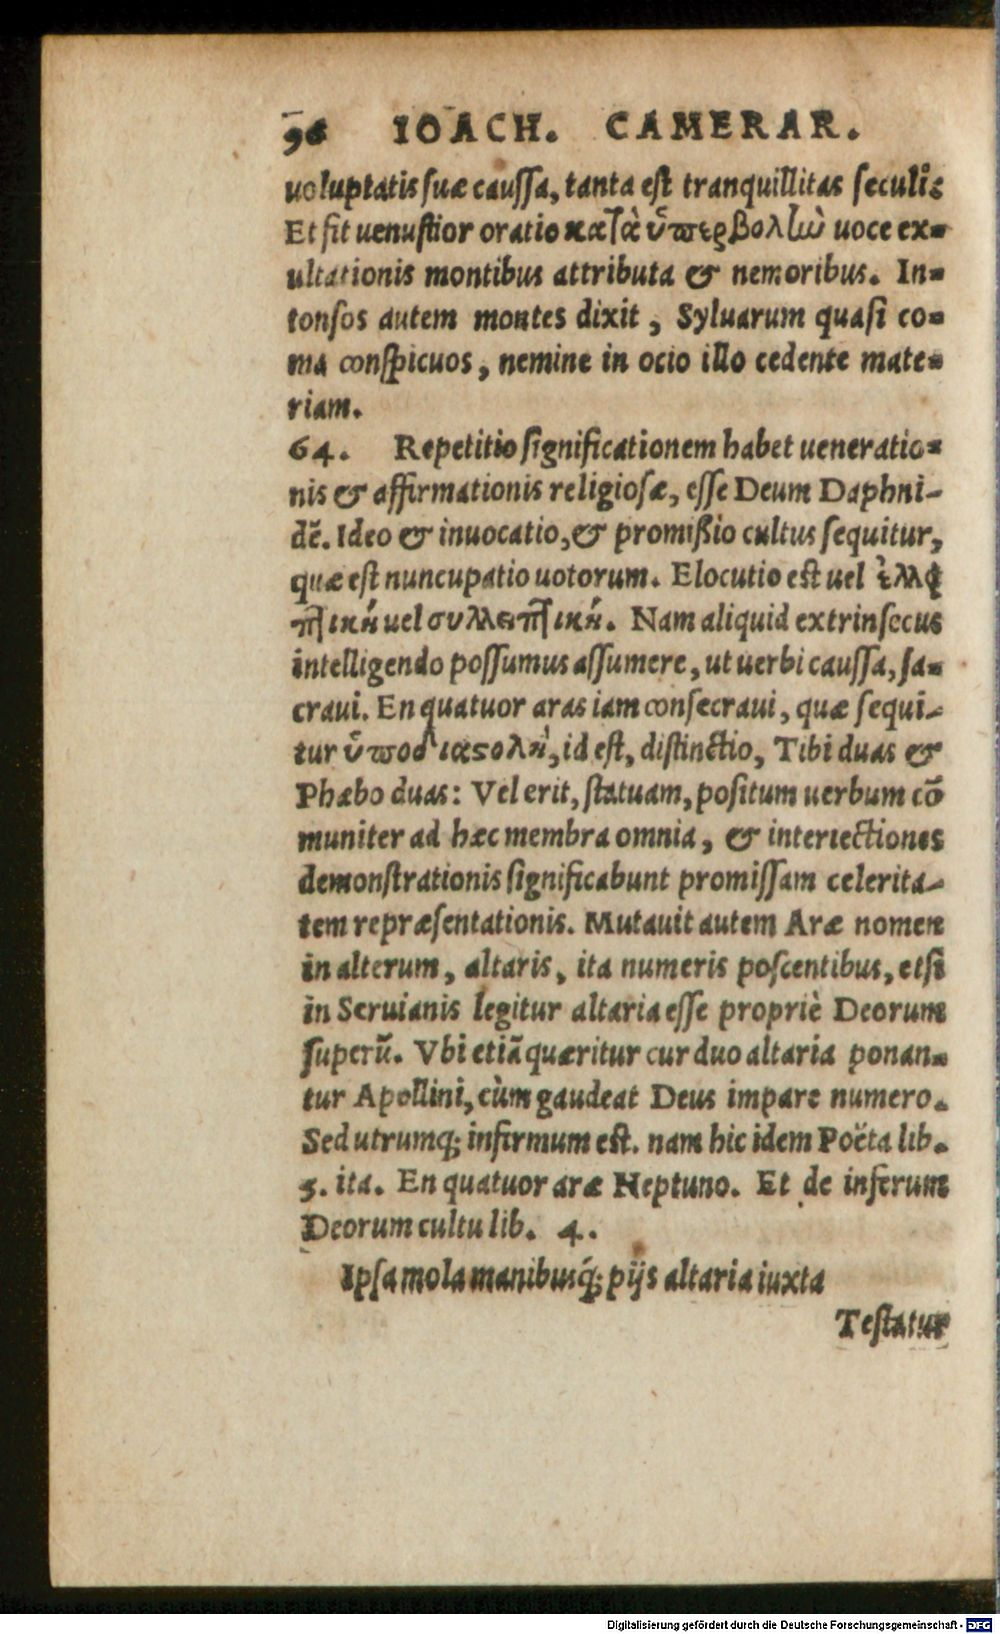 96 IOACH. CAMERAR.
uoluptatis suæ caussa, tanta est tranquillitas seculi:
Et fit uenustior oratio κατὰ ὑπερβολὴν uoce ex-
ultationis montibus attributa & nemoribus. In-
tonsos autem montes dixit, Syluarum quasi co-
ma conspicuos, nemine in ocio illo cedente mate-
riam.
64. Repetitio significationem habet ueneratio-
nis & affirmationis religiosæ, esse Deum Daphni-
dẽ. Ideo & inuocatio, & promißio cultus sequitur,
quæ est nuncupatio uotorum. Elocutio est uel ἐλλει
πτικὴ uel συλληπτικὴ. Nam aliquid extrinsecus
intelligendo possumus assumere, ut uerbi caussa, sa-
craui. En quatuor aras iam consecraui, quæ sequi-
tur ὑποδιαστολὴ, id est, distinctio, Tibi duas &
Phæbo duas: Vel erit, statuam, positum uerbum cõ
muniter ad hæc membra omnia, & interiectiones
demonstrationis significabunt promissam celerita-
tem repræsentationis. Mutauit autem Aræ nomen
in alterum, altaris, ita numeris poscentibus, etsi
in Seruianis legitur altaria esse propriè Deorum
superũ. Vbi etiã quæritur cur duo altaria ponan-
tur Apollini, cùm gaudeat Deus impare numero.
Sed utrumq; infirmum est. nam hic idem Poëta lib.
5. ita. En quatuor aræ Neptuno. Et de inferum
Deorum cultu lib. 4.
Ipsa mola manibusq́; pijs altaria iuxta
Testatur
Digitalisierung gefördert durch die Deutsche Forschungsgemeinschaft - DFG